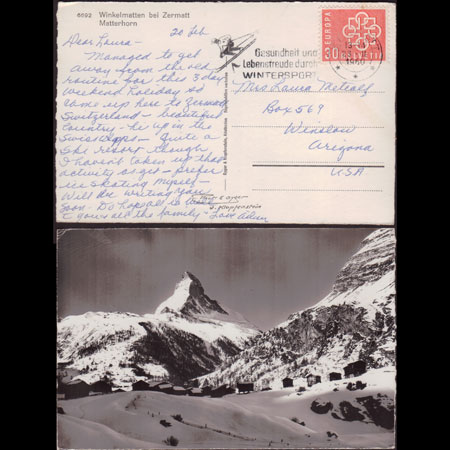 6092 Winkelmatten bei Zermatt
Matterhorn
20 Feb
Dear Laura –
Managed to get
away from the old
routine for this 3 day
weekend holiday so
came up here to Zermatt
Switzerland – beautiful
country – up in the
Swiss Alps – Quite a
ski resort though
I haven't taken up that
activity as yet – prefer
ice skating myself –
Will be writing you
soon – Do hope all is well
to you & all the family – Love
Gesundheit und
Lebensfreude durch
WINTERSPORT
EUROPA
30
HELVETIA
1960
Miss Laura Metcalf
Box 569
Winslow
Arizona
U.S.A.